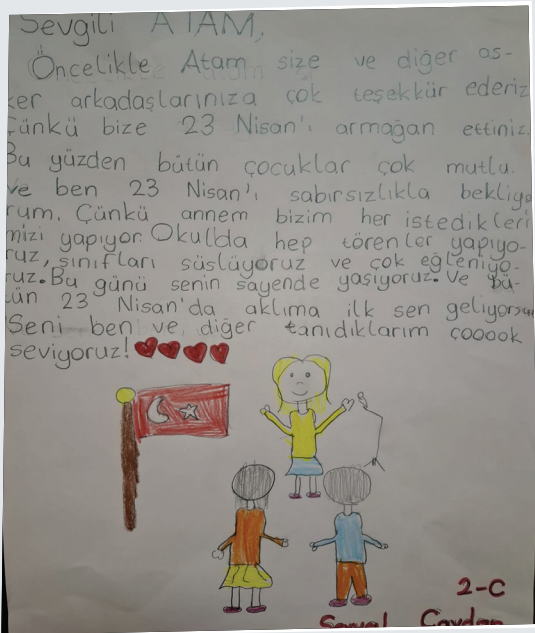 Sevgili ATAM,
Öncelikle Atam size ve diğer as-
ker arkadaşlarınıza çok teşekkür ederiz
Çünkü bize 23 Nisan'ı armağan ettiniz.
Bu yüzden bütün çocuklar çok mutlu.
Ve ben 23 Nisan'ı sabırsızlıkla bekliyo
rum. Çünkü annem bizim her istedikleri
mizi yapıyor. Okulda hep törenler yapıyo-
ruz, sınıfları süslüyoruz ve çok eğleniyo-
ruz. Bu günü senin sayende yaşıyoruz. Ve bü-
tün 23 Nisan'da aklıma ilk sen geliyorsun
Seni ben ve diğer tanıdıklarım çooook
seviyoruz!
2-C